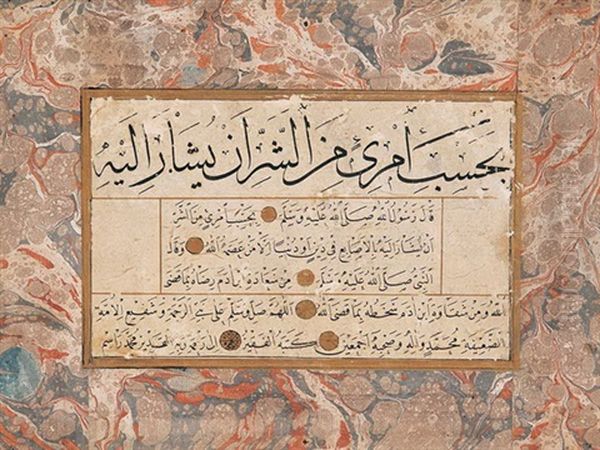 بحسب أمرئ من الشر ان يشار اليه
قال رسول الله صلى الله عليه وسلم بحسب امرئ من الشر
ان يشار اليه بالاصابع في دين او دنيا الا من عصمه الله وقال
النبي صلى الله عليه وسلم من سعادة ابن ادم رضاه بما قضى
الله ومن شقاوة ابن ادم سخطه بما قضى الله اللهم صل وسلم على نبي الرحمة وشفيع الامة
الضعيفة محمد واله وصحبه اجمعين كتبه الفقير محمد راسم